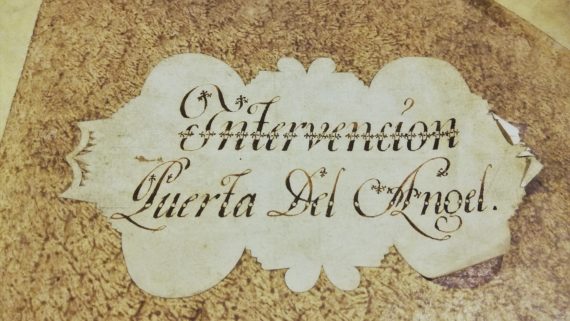 Intervención
Puerta Del Angel.